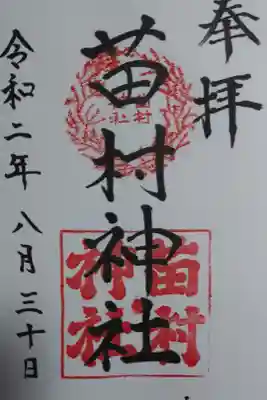 奉拝
苗村神社
令和二年八月三十日
苗村
神社
村
社